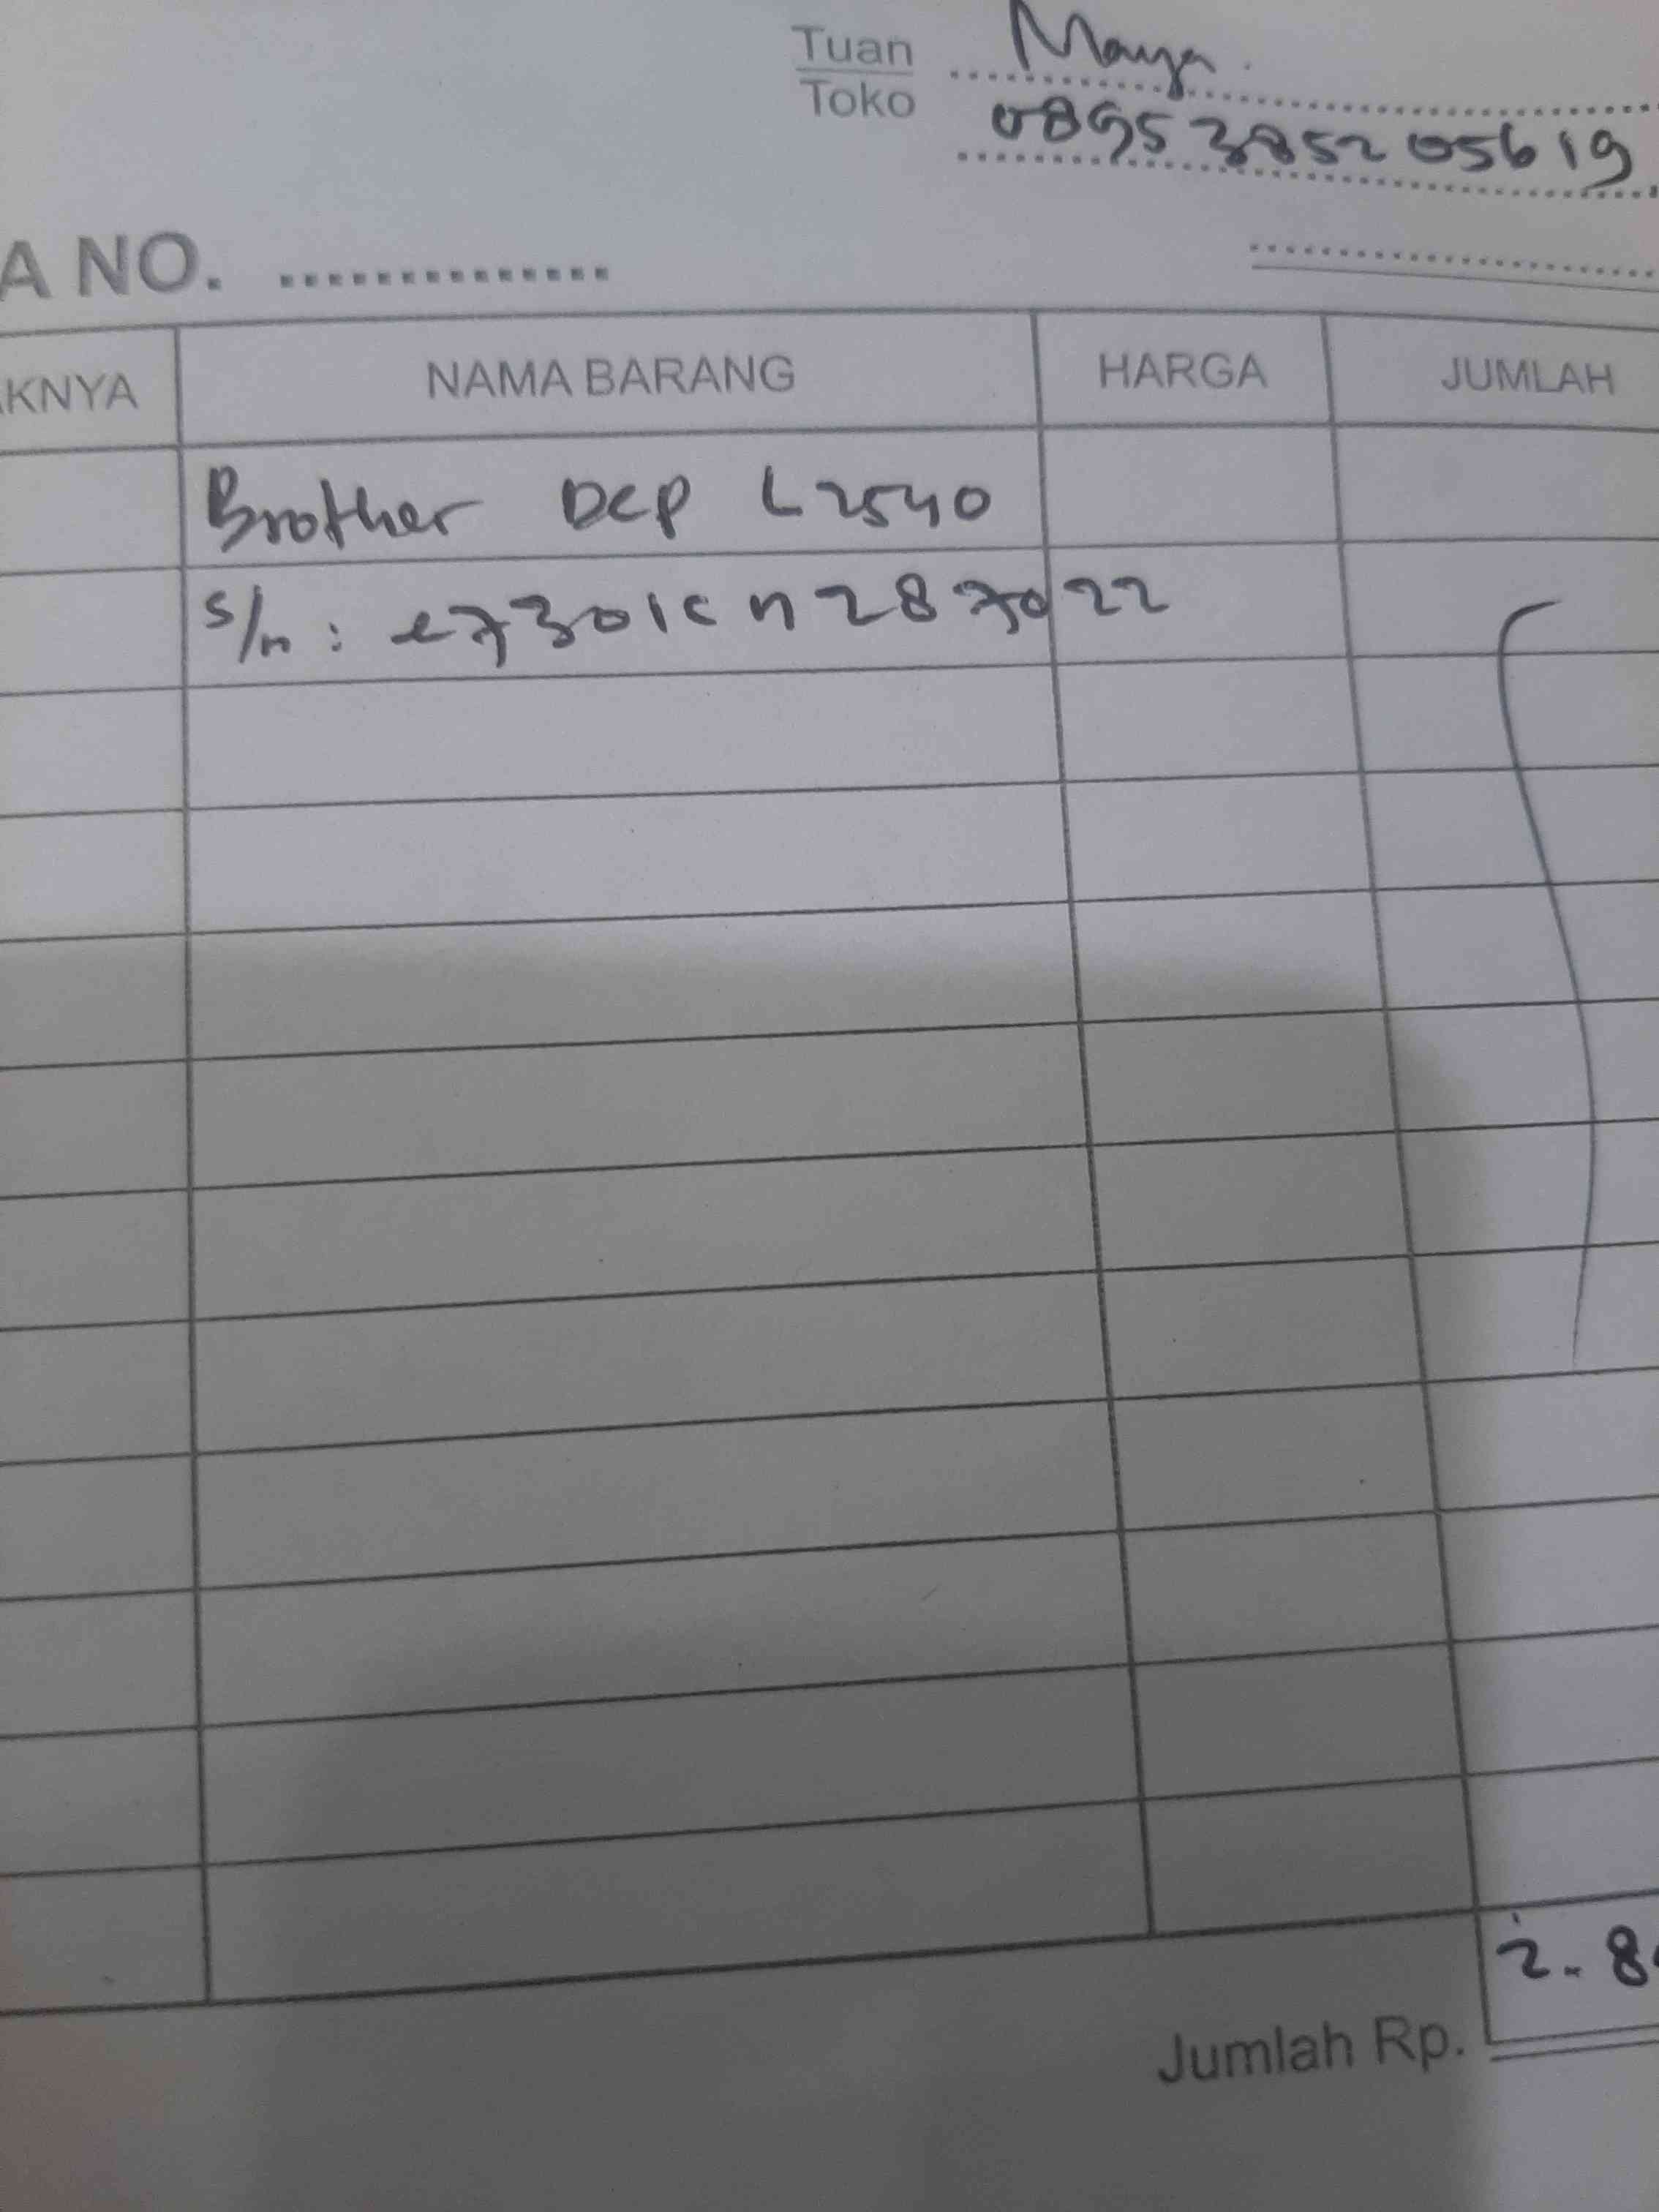 Tuan Maya.
Toko 0895385205619
A NO. ...............
KNYA NAMA BARANG HARGA JUMLAH
Brother DCP L2540
S/n : e7301cn287022
2.. 8
Jumlah Rp.